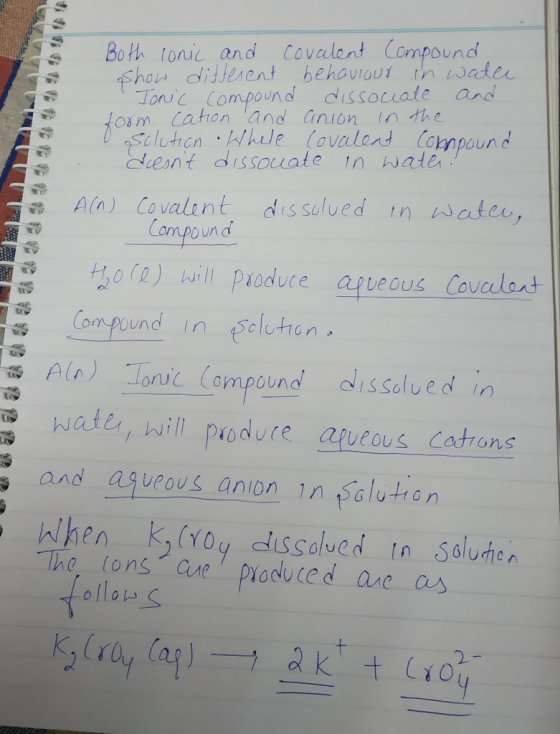 Both ionic and covalent Compound
show different behaviour in water
Ionic compound dissociate and
form cation and anion in the
solution. While Covalent Compound
doesnt dissociate in water.
A(n) Covalent dissolved in water,
Compound
H₂O(l) will produce aqueous Covalent
Compound in solution.
A(n) Ionic Compound dissolved in
water, will produce aqueous cations
and aqueous anion in solution
When K₂CrO₄ dissolved in solution
The ions are produced are as
follows
K₂CrO₄ (aq) → 2K⁺ + CrO₄²⁻